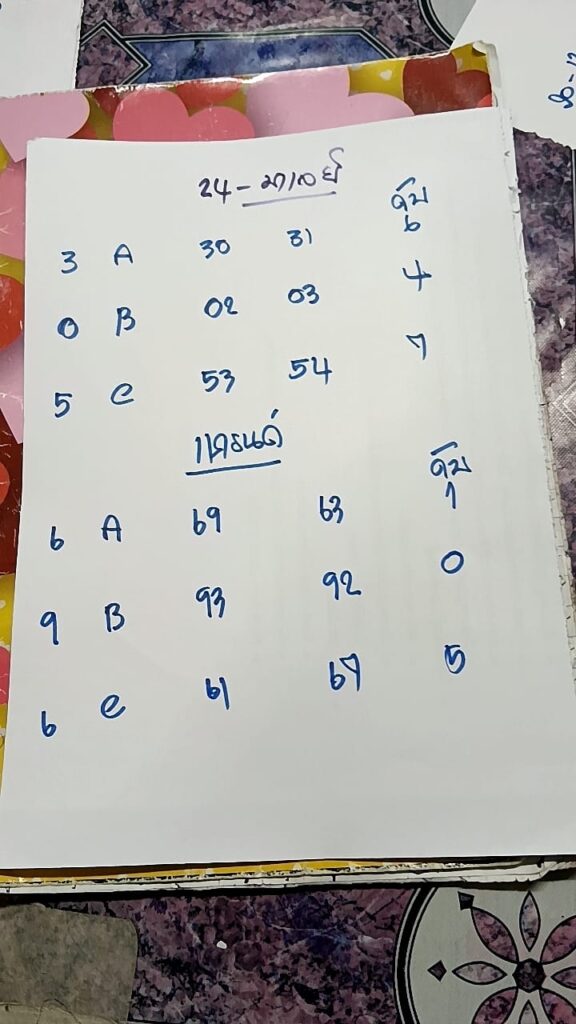 24 - มาเลย์
ดับ
3 A 30 31 6
0 B 02 03 4
5 C 53 54 7
แกรนด์
ดับ
6 A 69 63 1
9 B 93 92 0
6 C 61 67 5